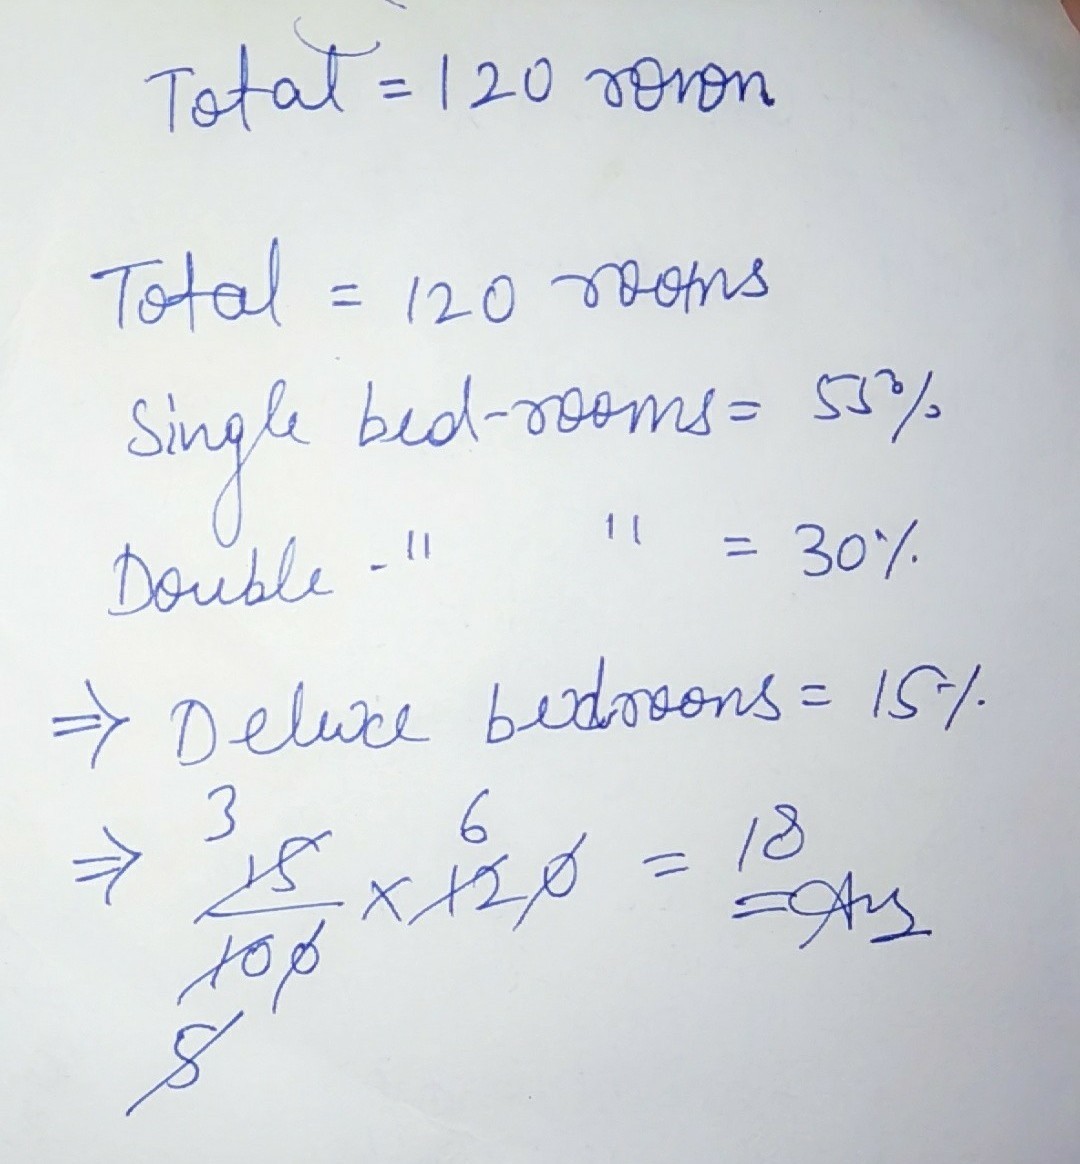 Total = 120 room
Total = 120 rooms
Single bed-rooms = 55%
Double - " " = 30%
⇒ Deluxe bedrooms = 15%
3 6
⇒ 15/100 × 120 = 18 Ans
5